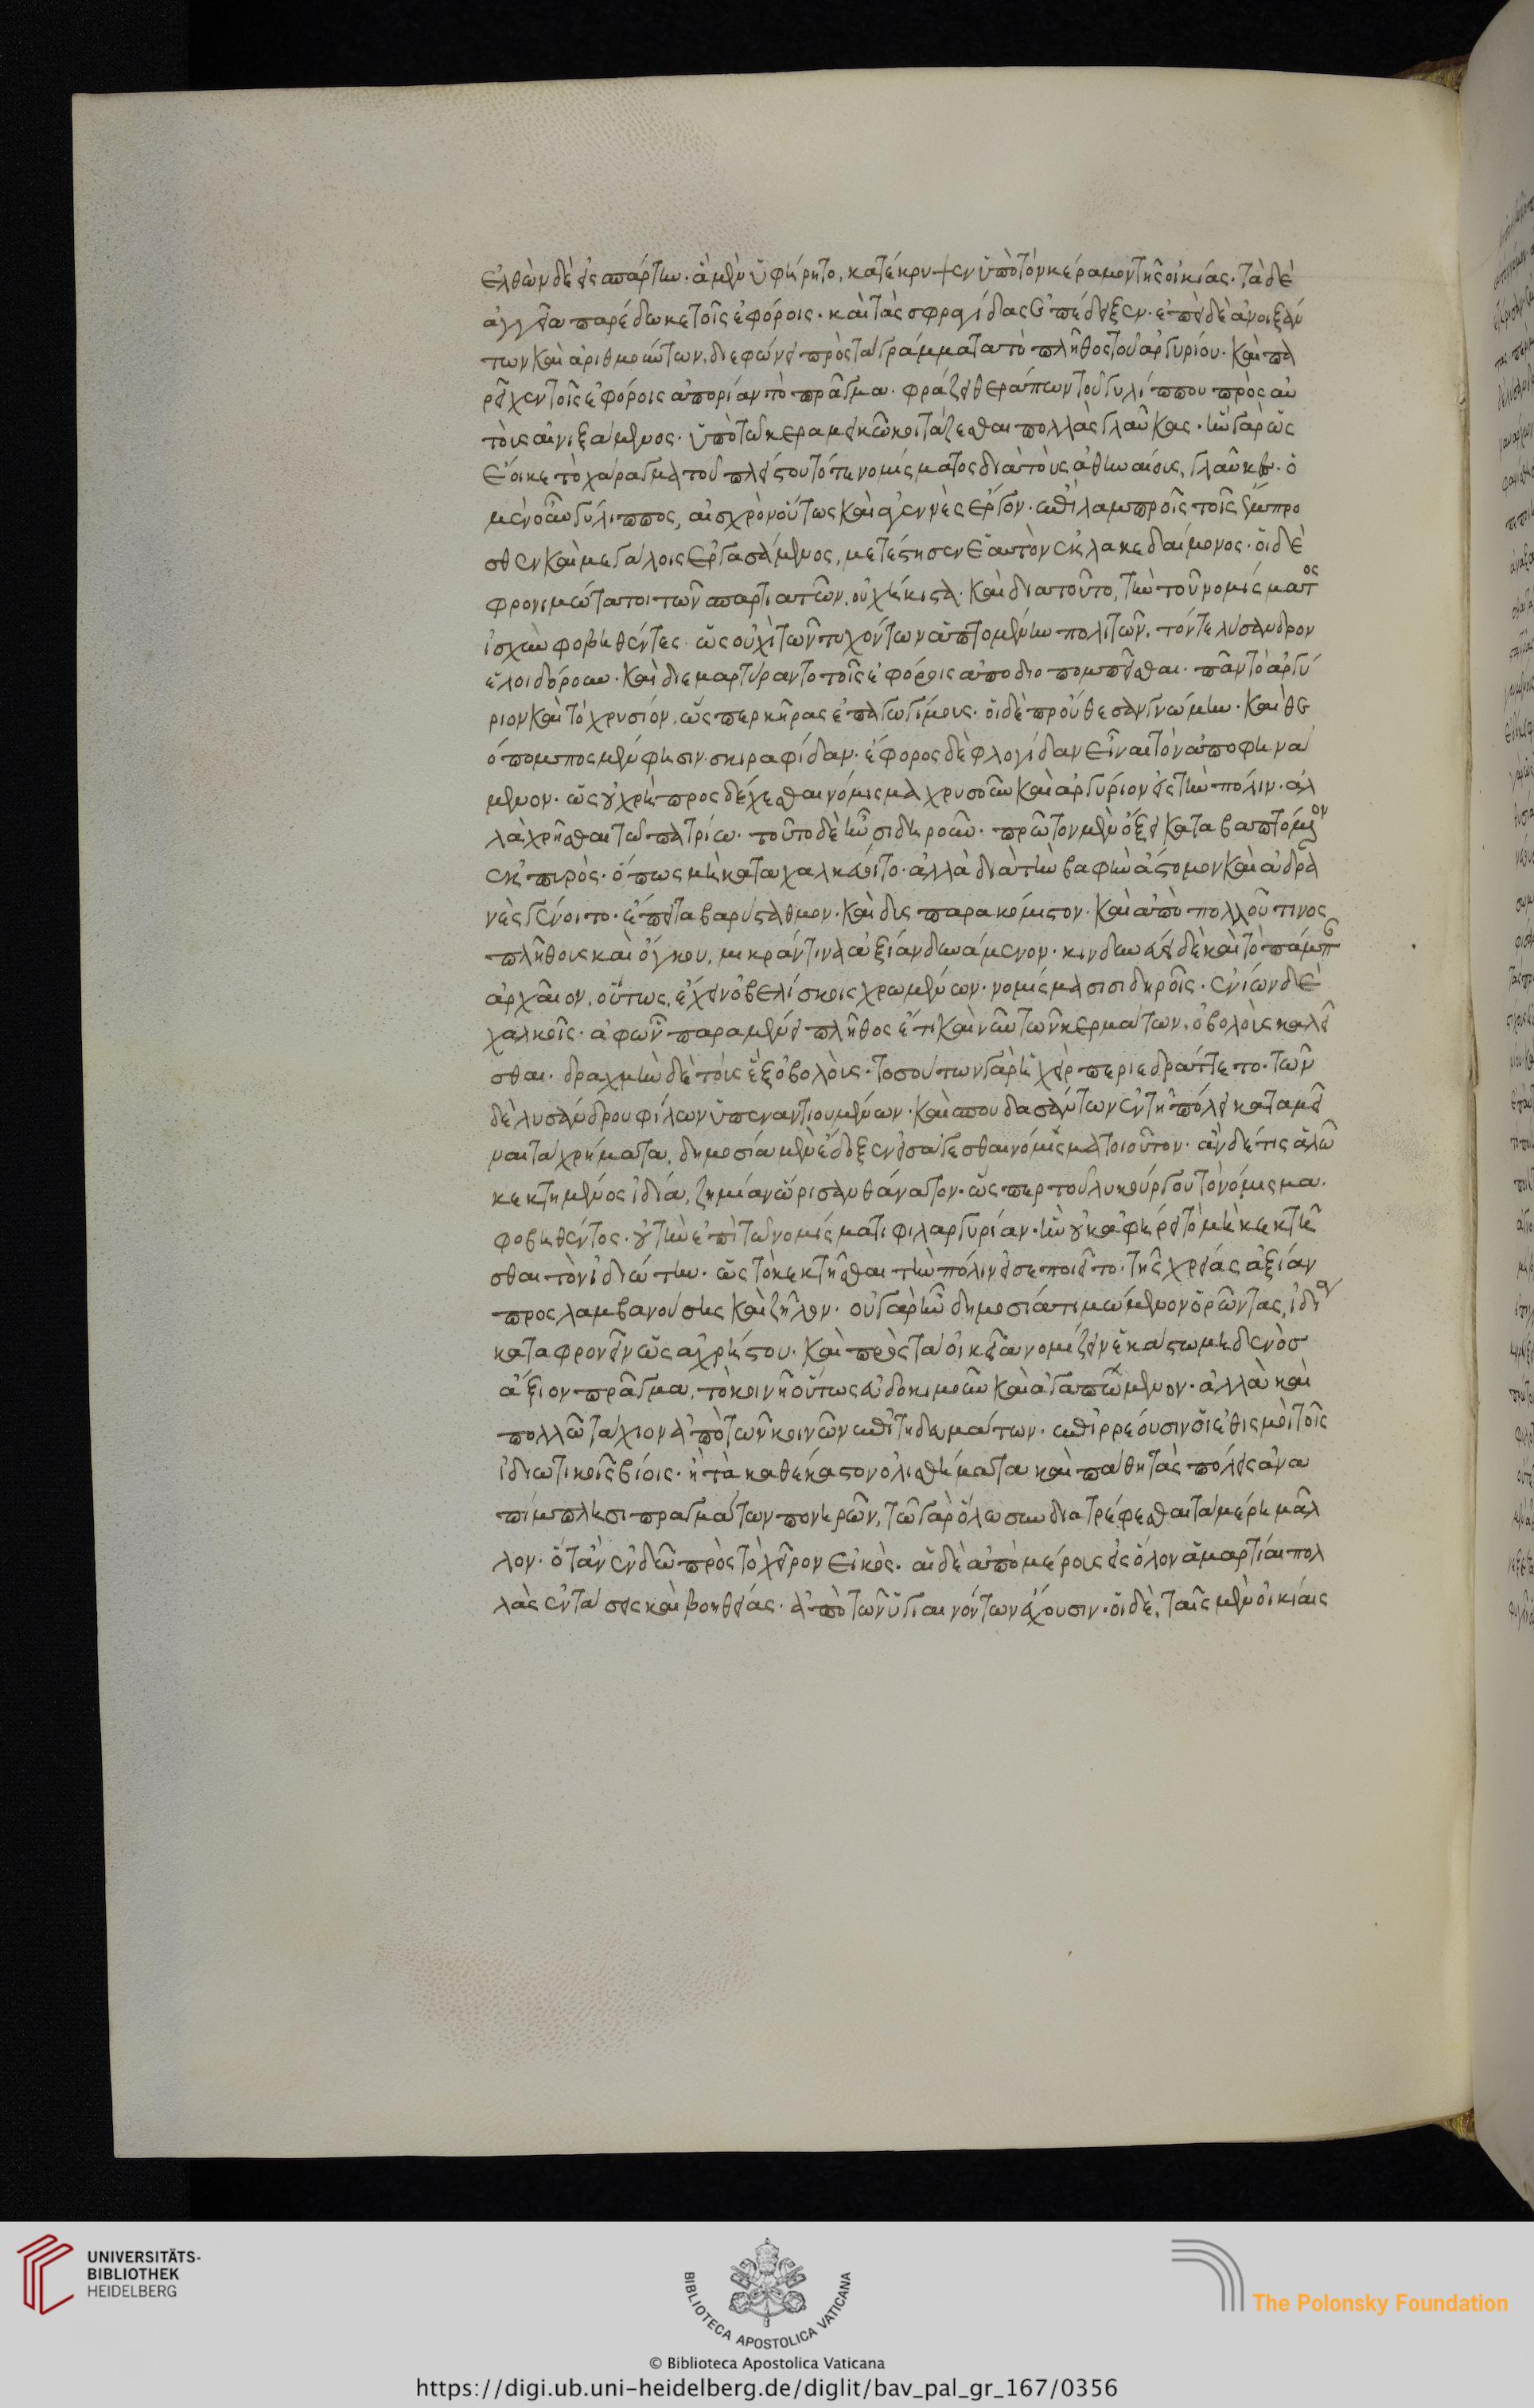 ἐλθὼν δὲ εἰς σπάρτην· ἃ μὲν ὑφήρητο, κατέκρυψεν ὑπὸ τὸν κέραμον τῆς οἰκίας· τὰ δὲ
ἀγγεῖα παρέδωκε τοῖς ἐφόροις· καὶ τὰς σφραγίδας ἐπέδειξεν· ἐπεὶ δὲ ἀνοιξάν
των καὶ ἀριθμούντων, διεφώνει πρὸς τὰ γράμματα τὸ πλῆθος τοῦ ἀργυρίου· καὶ πα
ρεῖχεν τοῖς ἐφόροις ἀπορίαν τὸ πρᾶγμα· φράζει θεράπων τοῦ γυλίππου πρὸς αὐ
τοὺς αἰνιξάμενος· ὑπὸ τῷ κεραμεικῷ κοιτάζεσθαι πολλὰς γλαῦκας· ἦν γὰρ ὡς
ἔοικε τὸ χάραγμα τοῦ πλείστου τότε νομίσματος διὰ τοὺς ἀθηναίους, γλαῦκες· ὁ
μὲν οὖν γύλιππος, αἰσχρὸν οὕτως καὶ ἀγεννὲς ἔργον· ἐπὶ λαμπροῖς τοῖς ἔμπρο
σθεν καὶ μεγάλοις ἐργασάμενος, μετέστησεν ἑαυτὸν ἐκ λακεδαίμονος· οἱ δὲ
φρονιμώτατοι τῶν σπαρτιατῶν, οὐχ ἥκιστα· καὶ διὰ τοῦτο, τὴν τοῦ νομίσματος
ἰσχὺν φοβηθέντες· ὡς οὐχὶ τῶν τυχόντων ἁπτομένην πολιτῶν, τόν τε λύσανδρον
ἐλοιδόρουν· καὶ διεμαρτύραντο τοῖς ἐφόροις ἀποδιοπομπεῖσθαι· πᾶν τὸ ἀργύ
ριον καὶ τὸ χρυσίον, ὥσπερ κῆρας ἐπαγωγίμους· οἱ δὲ προὔθεσαν γνώμην· καὶ θε
όπομπος μέν φησιν· σκιραφίδαν· ἔφορος δὲ φλογίδαν εἶναι τὸν ἀποφηνά
μενον· ὡς οὐ χρὴ προσδέχεσθαι νόμισμα χρυσοῦν καὶ ἀργύριον εἰς τὴν πόλιν· ἀλ
λὰ χρῆσθαι τῷ πατρίῳ· τοῦτο δὲ ἦν σιδηροῦν· πρῶτον μὲν ὄξει καταβαπτόμενον
ἐκ πυρός· ὅπως μὴ καταχαλκεύοιτο· ἀλλὰ διὰ τὴν βαφὴν ἄστομον καὶ ἀδρα
νὲς γένοιτο· ἔπειτα βαρύσταθμον· καὶ δυσπαρακόμιστον· καὶ ἀπὸ πολλοῦ τινος
πλήθους καὶ ὄγκου, μικράν τινα ἀξίαν δυνάμενον· κινδυνεύει δὲ καὶ τὸ πάμπαν
ἀρχαῖον, οὕτως, ἔχειν ὀβελίσκοις χρωμένων· νομίσμασι σιδηροῖς· ἐνίων δὲ
χαλκοῖς· ἀφ' ὧν παραμένει πλῆθος ἔτι καὶ νῦν τῶν κερμάτων, ὀβολοὺς καλεῖ
σθαι· δραχμὴν δὲ τοὺς ἓξ ὀβολούς· τοσούτων γὰρ ἡ χεὶρ περιεδράττετο· τῶν
δὲ λυσάνδρου φίλων ὑπεναντιουμένων· καὶ σπουδασάντων ἐν τῇ πόλει καταμεῖ
ναι τὰ χρήματα, δημοσίᾳ μὲν ἔδοξεν εἰσάγεσθαι νόμισμα τοιοῦτον· ἂν δέ τις ἁλῷ
κεκτημένος ἰδίᾳ, ζημίαν ὥρισαν θάνατον· ὥσπερ τοῦ λυκούργου τὸ νόμισμα·
φοβηθέντος· οὐ τὴν ἐπὶ τῷ νομίσματι φιλαργυρίαν· ἣν οὐκ ἀφῄρει τὸ μὴ κεκτῆ
σθαι τὸν ἰδιώτην· ὡς τὸ κεκτῆσθαι τὴν πόλιν εἰσεποιεῖτο· τῆς χρείας ἀξίαν
προσλαμβανούσης καὶ ζῆλον· οὐ γὰρ ἦν δημοσίᾳ τιμώμενον ὁρῶντας, ἰδίᾳ
καταφρονεῖν ὡς ἀχρήστου· καὶ πρὸς τὰ οἰκεῖα νομίζειν ἑκάστῳ μηδενὸσ
ἄξιον πρᾶγμα, τὸ κοινῇ οὕτως εὐδοκιμοῦν καὶ ἀγαπώμενον· ἀλλὰ καὶ
πολλῷ τάχιον ἀπὸ τῶν κοινῶν ἐπιτηδευμάτων· ἐπιρρέουσιν οἱ ἐθισμοὶ τοῖς
ἰδιωτικοῖς βίοις· ἢ τὰ καθ' ἕκαστον ὀλισθήματα καὶ πάθη τὰς πόλεις ἀνα
πίμπλησι πραγμάτων πονηρῶν, τῷ γὰρ ὅλῳ συνδιατρέφεσθαι τὰ μέρη μᾶλ
λον· ὅταν ἐνδῷ πρὸς τὸ χεῖρον εἰκός· αἱ δὲ ἀπὸ μέρους εἰς ὅλον ἁμαρτίαι πολ
λὰς ἐνστάσεις καὶ βοηθείας· ἀπὸ τῶν ὑγιαινόντων ἔχουσιν· οἱ δὲ, ταῖς μὲν οἰκίαις
UNIVERSITÄTS-
BIBLIOTHEK
HEIDELBERG
BIBLIOTECA APOSTOLICA VATICANA
The Polonsky Foundation
© Biblioteca Apostolica Vaticana
https://digi.ub.uni-heidelberg.de/diglit/bav_pal_gr_167/0356